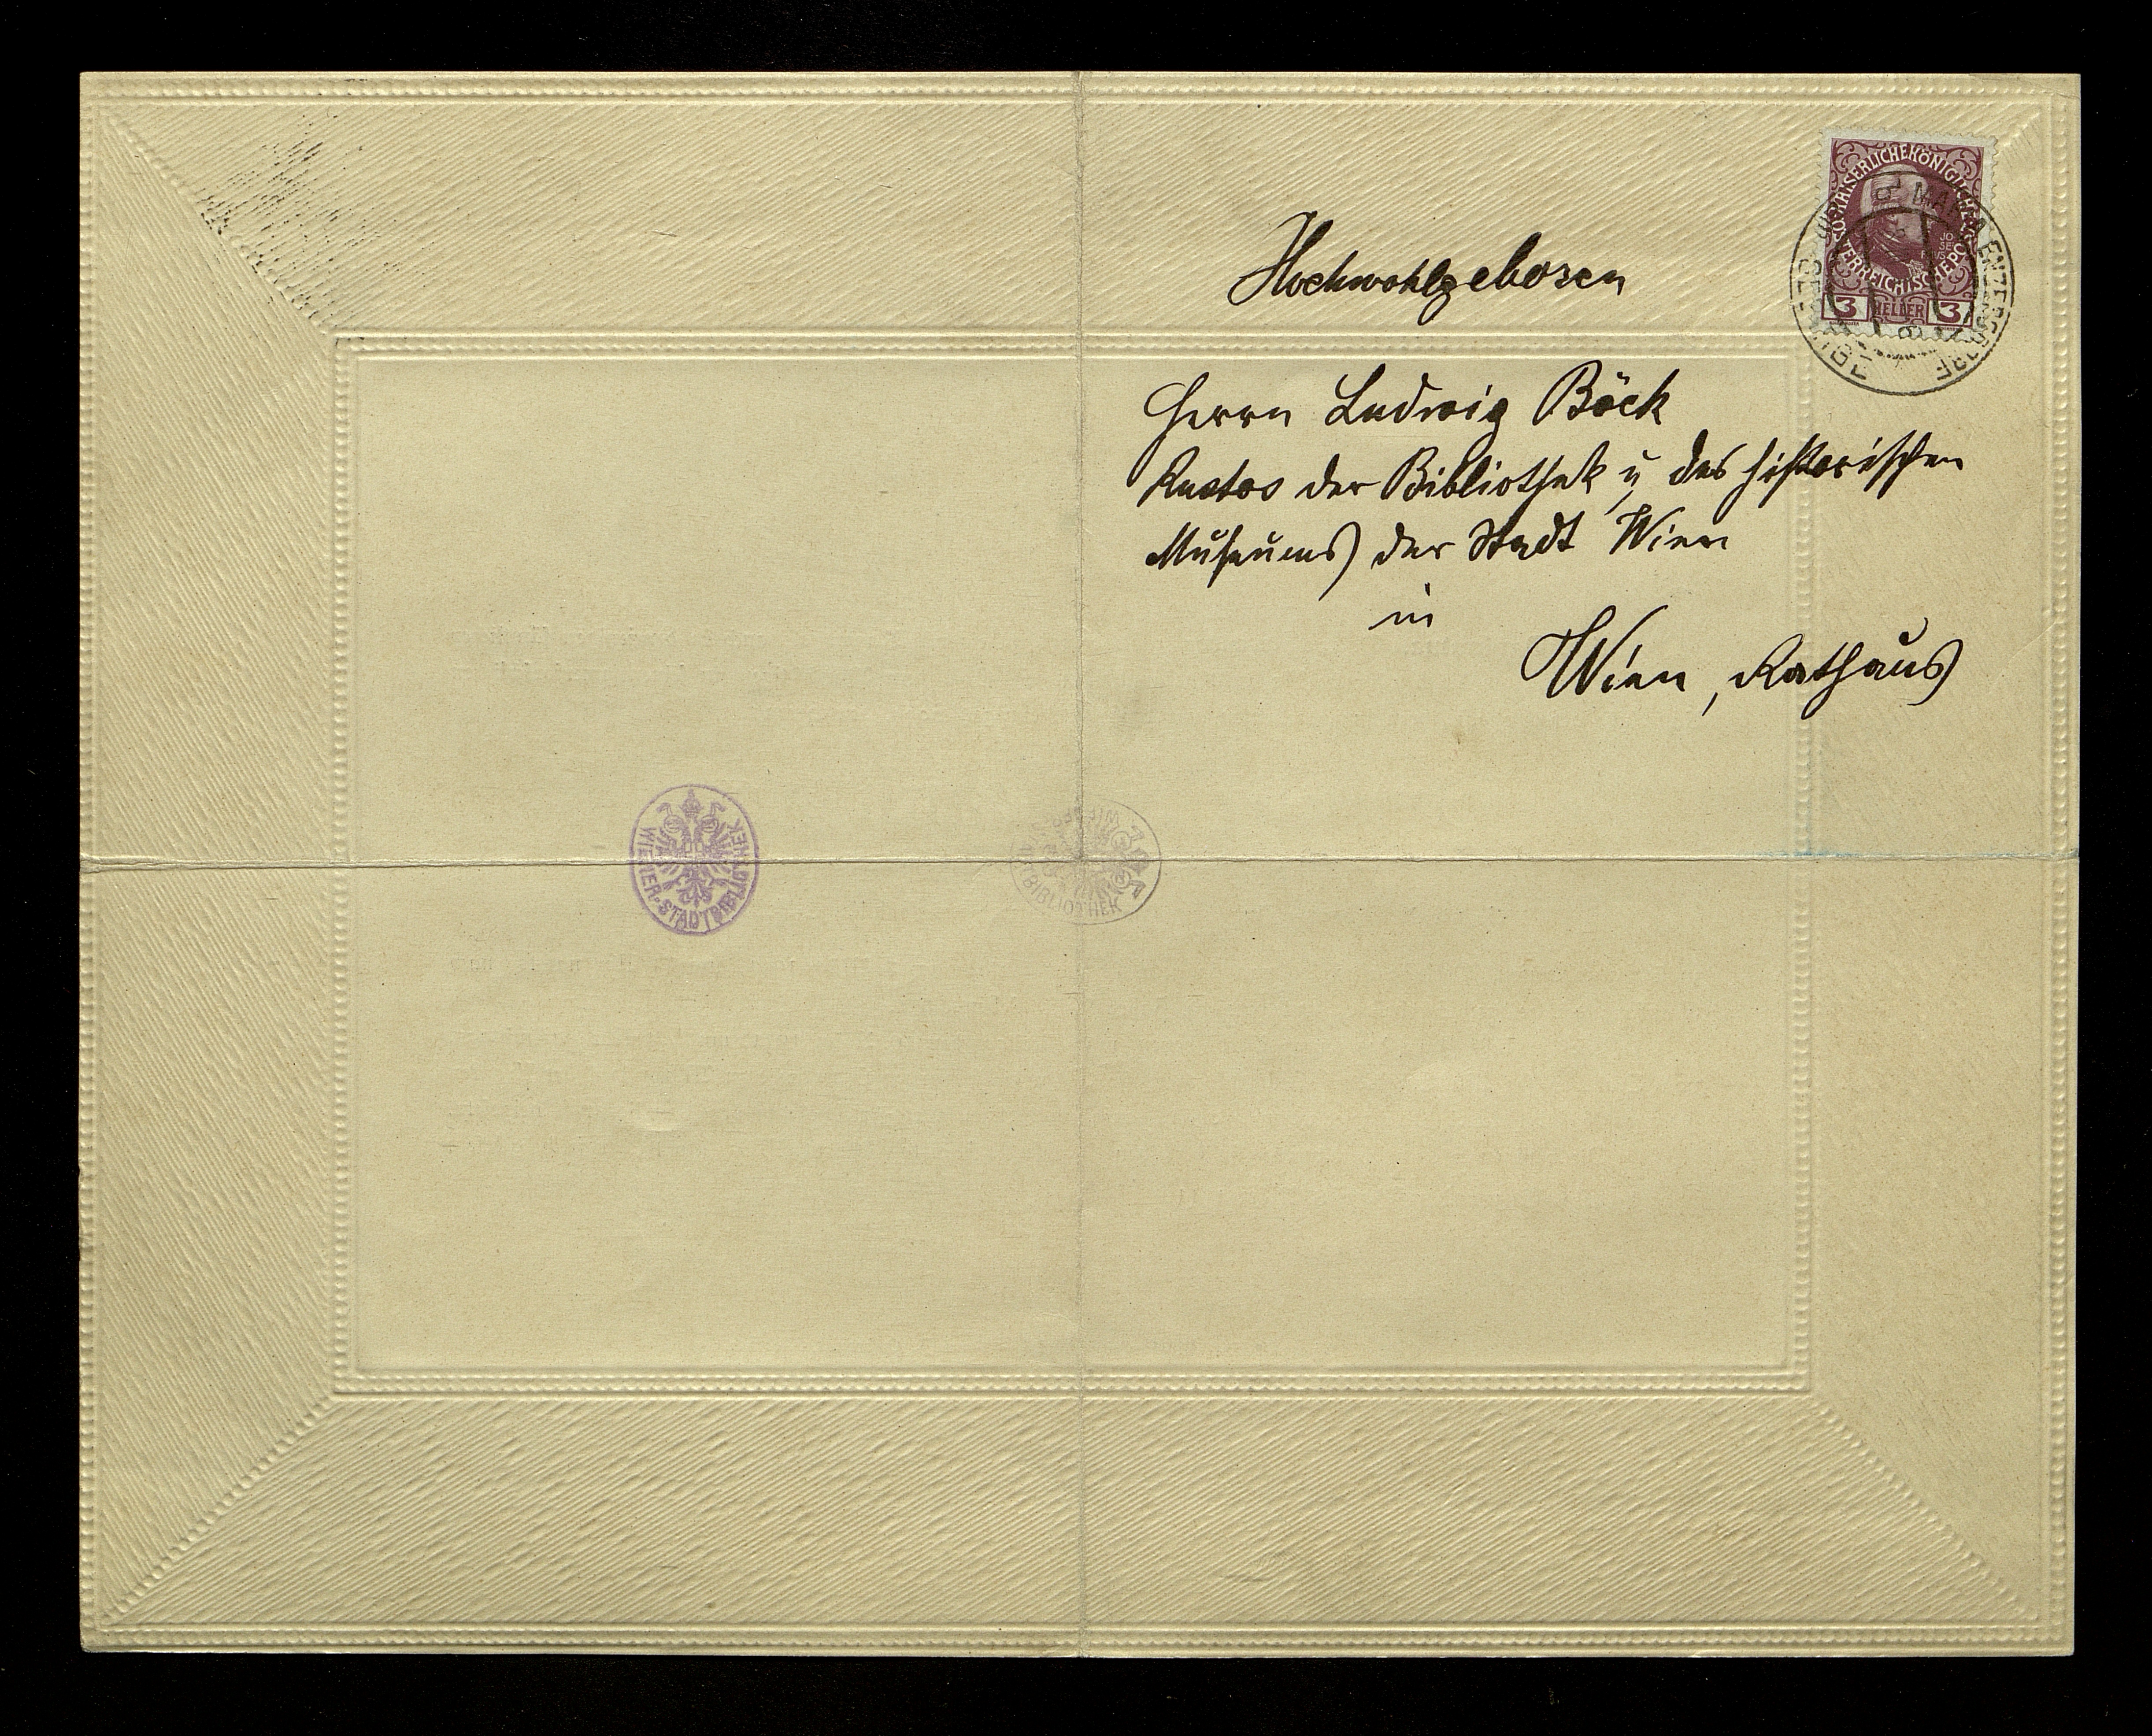 KAISERLICHE KÖNIGLICHE
ÖSTERREICHISCHE POST
3 HELLER 3
MARIA ENZERSDORF
Hochwohlgeboren
Herrn Ludwig Böck
Kustos der Bibliothek u des historischen
Museums der Stadt Wien
in
Wien, Rathaus
WIENER·STADTBIBLIOTHEK
BIBLIOTHEK